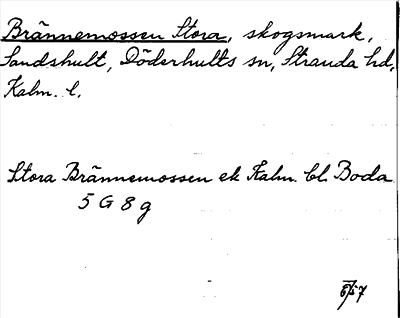 Brännemossen Stora, skogsmark,
Sandshult, Döderhults sn, Stranda hd,
Kalm. l.
Stora Brännemossen ek Kalm. bl. Boda
5 G 8 g